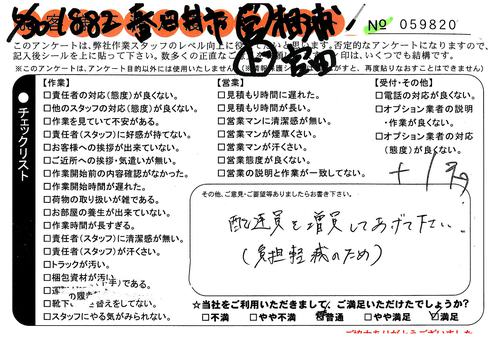 № 059820
このアンケートは、弊社作業スタッフのレベル向上に
否定的なアンケートになりますので、
記入後シールを上に貼って下さい。
印は、いくつでも結構です。
※このアンケートは、アンケート目的以外には使用いたしません
再度貼りなおすことはできません
●チェックリスト
【作業】
□責任者の対応(態度)が良くない。
□他のスタッフの対応(態度)が良くない。
□作業を見ていて不安がある。
□責任者(スタッフ)に好感が持てない。
□お客様への挨拶が出来ていない。
□ご近所への挨拶・気遣いが無い。
□作業開始前の内容確認がなかった。
□作業開始時間が遅れた。
□荷物の取り扱いが雑である。
□お部屋の養生が出来ていない。
□作業時間が長すぎる。
□責任者(スタッフ)に清潔感が無い。
□責任者(スタッフ)が汗くさい。
□トラックが汚い。
□梱包資材が汚い。
である。
□靴下
替えをしてない。
□スタッフにやる気がみられない。
【営業】
□見積もり時間に遅れた。
□見積もり時間が長い。
□営業マンに清潔感が無い。
□営業マンが煙草くさい。
□営業マンが汗くさい。
□営業態度が良くない。
□営業の説明と作業が一致してない。
【受付・その他】
□電話の対応が良くない。
□オプション業者の説明
・作業が良くない。
□オプション業者の対応
(態度)が良くない。
その他、ご意見・ご要望等ありましたらお書き下さい。
配送員を増員してあげて下さい。
(負担軽減のため)
☆当社をご利用いただきまして、ご満足いただけたでしょうか?
□不満 □やや不満 □普通 □やや満足 □満足
ご協力ありがとうございました